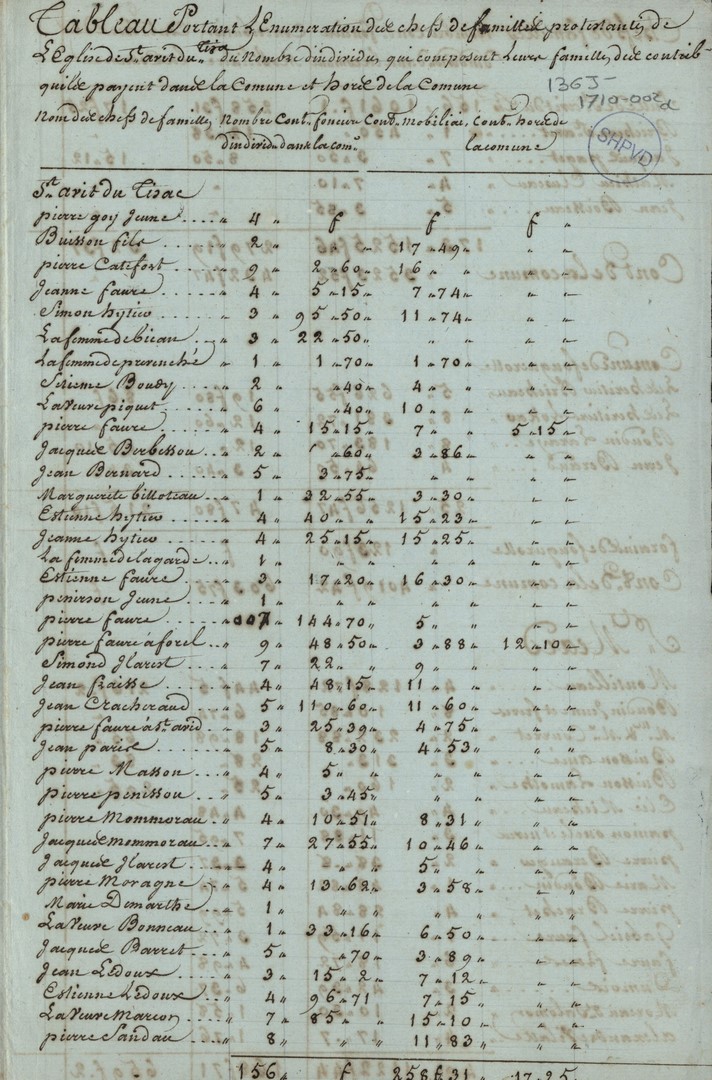 Tableau Portant L'Enumeration des chefs de familles protestants de
L'Eglise de St. avit du Tisac du Nombre d'individus qui composent Leurs familles, des contrib
qu'ils payent dans la Comune et hors de la Comune
136J
1710-002d
SHPVD
Nom des chefs de familles Nombre Cont. fonciere Cont. mobiliai. Cont. hors de
d'individu dans la com. la comune
St. avit du Tisac
pierre goy Jeune .... " 4 " f " f " f "
Buisson fils ..... " 2 " " " 17 " 49 " " "
pierre Catefort ..... " 9 " 2 " 60 " 16 " " " "
Jeanne faure ..... " 4 " 5 " 15 " 7 " 74 " " "
Simon hytier ..... " 3 " 95 " 50 " 11 " 74 " " "
La femme de bieau .. " 3 " 22 " 50 " " " " "
La femme de prevenché " 1 " 1 " 70 " 1 " 70 " " "
Boudy ... " 2 " " 40 " 4 " " " "
La Veuve piquet .... " 6 " " 40 " 10 " " " "
pierre faure ..... " 4 " 15 " 15 " 7 " " 5 " 15 "
Jacques Berbesson .. " 2 " " 60 " 3 " 86 " " "
Jean Bernard .... " 5 " 3 " 75 " " " " "
Marguerite billoteau .. " 1 " 32 " 55 " 3 " 30 " " "
Estienne hytier ..... " 4 " 40 " " 15 " 23 " " "
Jeanne hytier ..... " 4 " 25 " 15 " 15 " 25 " " "
La femme de lagarde .. " 1 " " " " " " "
Estienne faure .... " 3 " 17 " 20 " 16 " 30 " " "
penisson Jeune .... " 1 " " " " " " "
pierre faure ..... 007 " 144 " 70 " 5 " " " "
pierre faure a forel .. " 9 " 48 " 50 " 3 " 88 " 12 " 10 "
Simond Flarest .... " 7 " 22 " " 9 " " " "
Jean fraisse ..... " 4 " 48 " 15 " 11 " " " "
Jean Cracheraud ... " 5 " 110 " 60 " 11 " 60 " " "
pierre faure a St. avid .. " 3 " 25 " 39 " 4 " 75 " " "
Jean paris ..... " 5 " 8 " 30 " 4 " 53 " " "
pierre Masson .... " 4 " 5 " " " " " "
pierre penisson ... " 5 " 3 " 45 " " " " "
pierre Mommorau .. " 4 " 10 " 51 " 8 " 31 " " "
Jacques mommorau .. " 7 " 27 " 55 " 10 " 46 " " "
Jacques Flarest ..... " 4 " " " 5 " " " "
pierre Moragne ... " 4 " 13 " 62 " 3 " 58 " " "
Marie Demarthe .. " 1 " " " " " " "
La Veuve Bonneau ... " 1 " 33 " 16 " 6 " 50 " " "
Jacques Barret .... " 5 " " 70 " 3 " 89 " " "
Jean Ledoux ..... " 3 " 15 " 2 " 7 " 12 " " "
Estienne Ledoux .... " 4 " 96 " 71 7 " 15 " " "
La Veuve Marcon ... " 7 " 85 " " 15 " 10 " " "
pierre Sandau .... " 8 " " " 11 " 83 " " "
156 " f 258 f 31 " 17 " 25